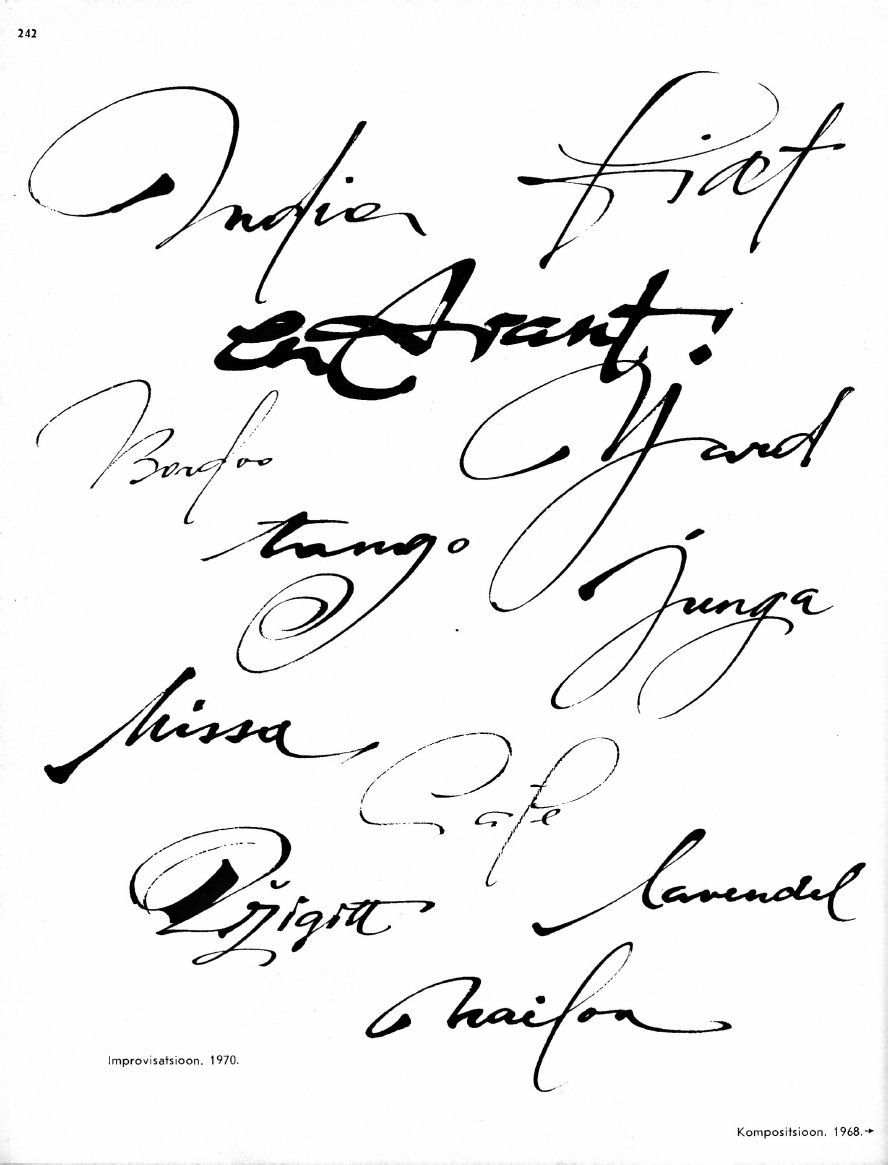 242
India fiat
en Avant!
Bordoo Yard
tango
junga
Cafe
Džigitt lavendel
Nailon
Improvisatsioon. 1970.
Kompositsioon. 1968.→